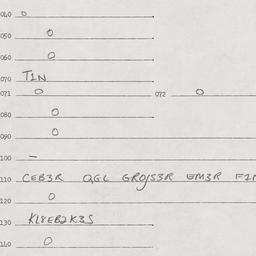 040 0
050 0
060 0
070 T1N
071 0 072 0
080 0
090 0
100 -
110 CEB3R QGL GROJS3R EM3R F1
120 0
130 KL8EB2K3S
140 0